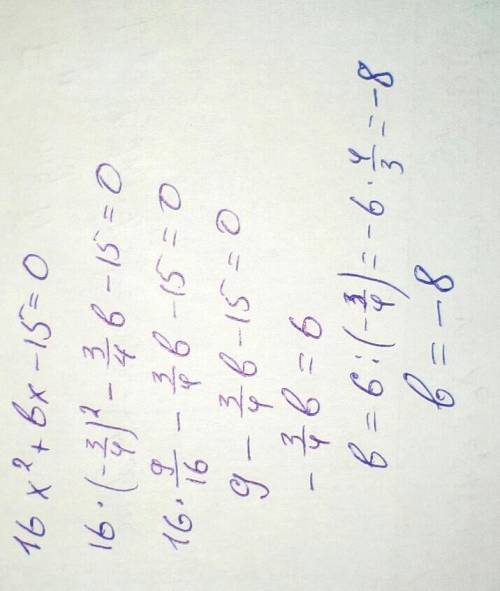 16x² + bx - 15 = 0
16·(-3/4)² - 3/4 b - 15 = 0
16·9/16 - 3/4 b - 15 = 0
9 - 3/4 b - 15 = 0
- 3/4 b = 6
b = 6 : (-3/4) = -6·4/3 = -8
b = -8